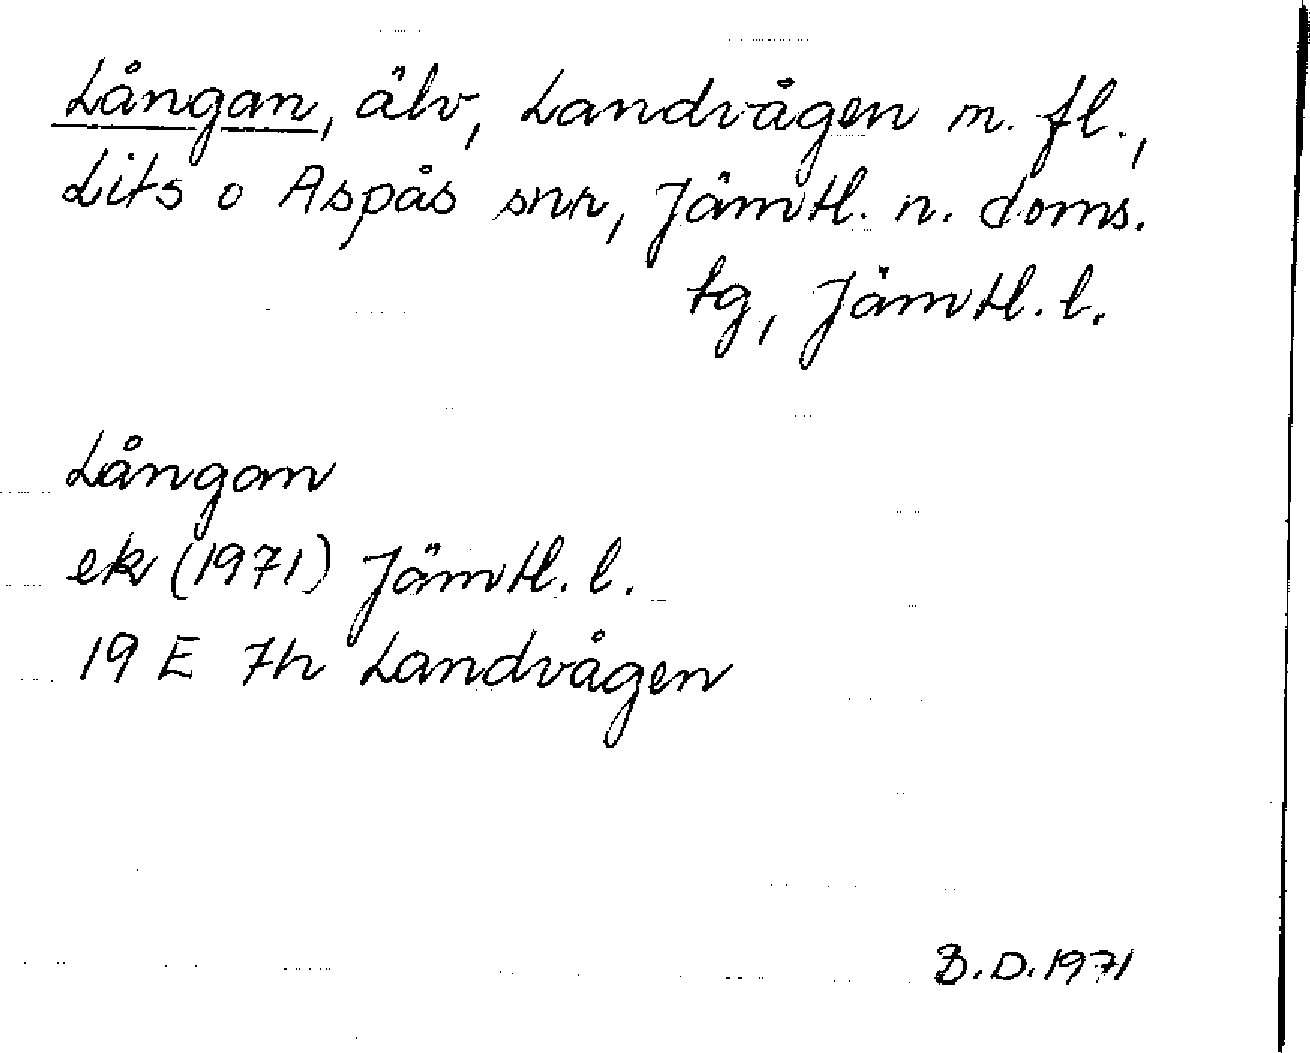 Långan, älv, Landvågen m. fl.,
Lits o Aspås snr, Jämtl. n. doms.
tg, Jämtl. l.
Långan
ek (1971) Jämtl. l.
19 E 7h Landvågen
B.D. 1971